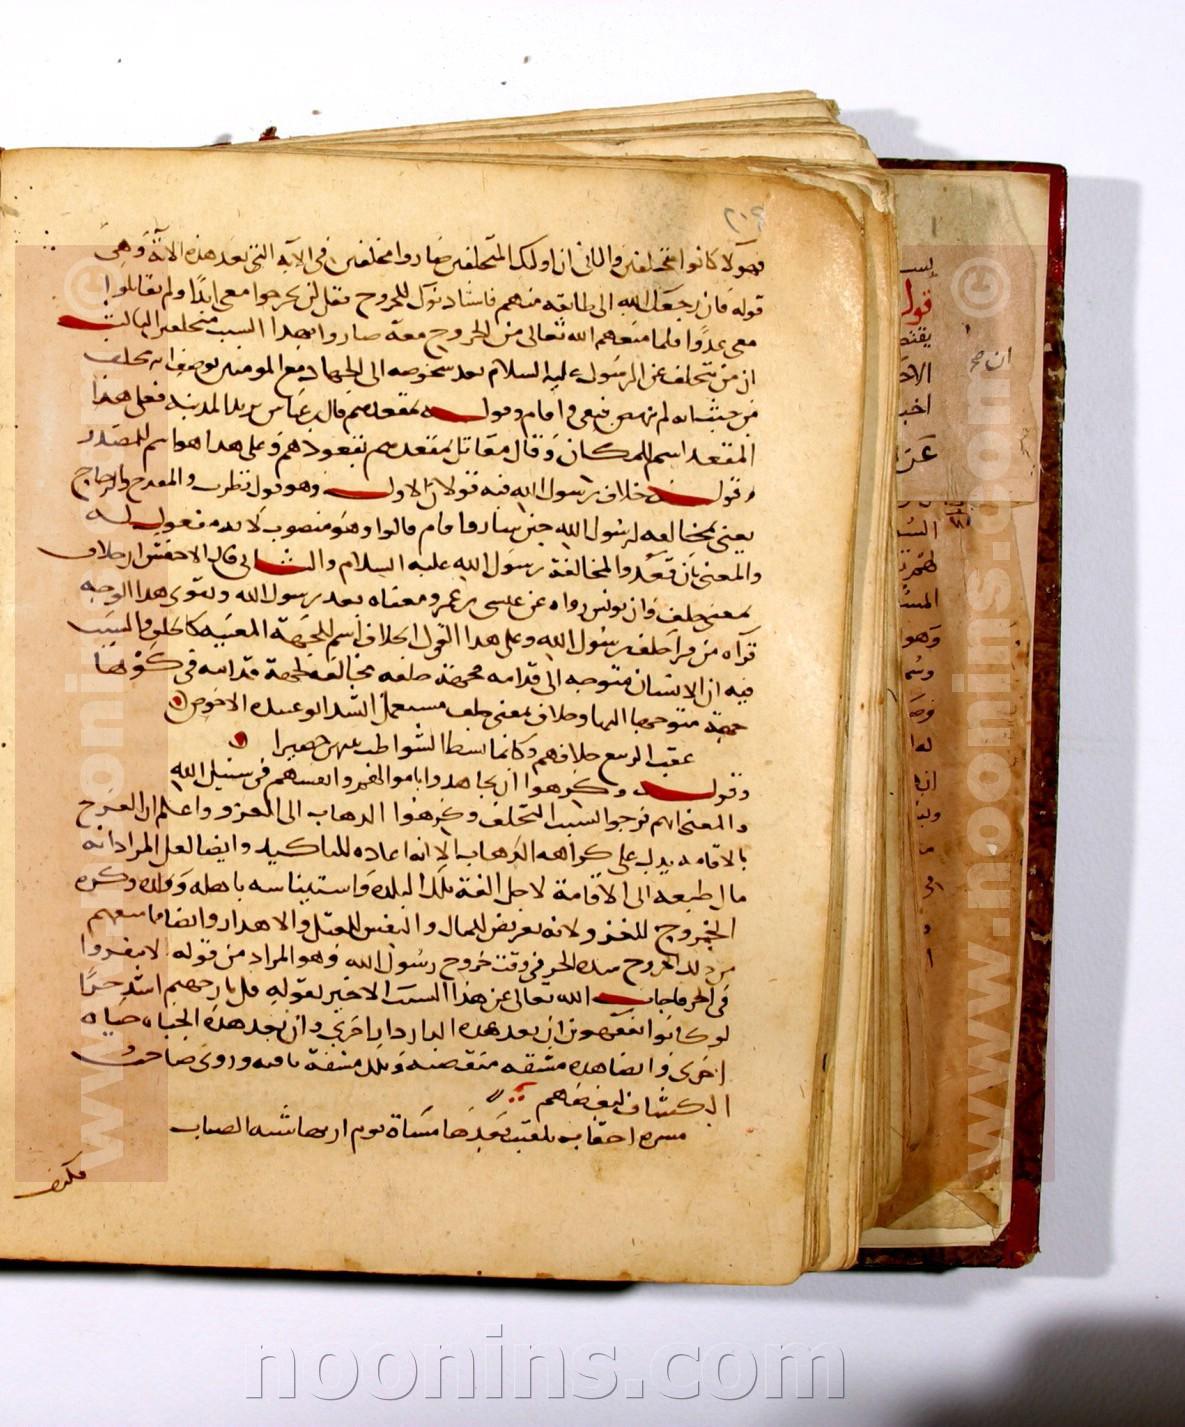 ٢٠٩
فهولا كانوا متخلفين والثاني ان اوليك المتخلفين صاروا مخلفين في الآية التي بعد هذه الآية وهي
قوله فان رجعك الله الى طايفة منهم فاستاذنوك للخروج فقل لن تخرجوا معي ابدا ولن تقاتلوا
معي عدوا فلما منعهم الله تعالى من الخروج معه صاروا بهذا السبب مخلفين الثالث
ان من يتخلف عن الرسول عليه السلام بعد خروجه الى الجهاد مع المومنين يوصف بانه مخلف
من حيث انه لم ينهض فبقي واقام وقوله بمقعدهم قال ابن عباس يريد المدينة فعلى هذا
المقعد اسم للمكان وقال مقاتل بمقعدهم بقعودهم وعلى هذا هو اسم للمصدر
وقوله خلاف رسول الله فيه قولان الاول وهو قول قطرب والمورج والزجاج
يعني مخالفة لرسول الله حين سار واقاموا قالوا وهو منصوب لانه مفعول له
والمعنى بان قعدوا لمخالفة رسول الله عليه السلام والثاني قال الاخفش ان خلاف
بمعنى خلف وان يونس رواه عن عيسى بن عمر ومعناه بعد رسول الله ويقوي هذا الوجه
قراة من قرا خلف رسول الله وعلى هذا القول الخلاف اسم للجهة المعينة كالخلف والسبب
فيه ان الانسان متوجه الى قدامه فجهة خلفه مخالفة لجهة قدامه في كونها
جهة متوجها اليها وخلاف بمعنى خلف مستعمل انشد ابو عبيدة الاحوص
عقب الربيع خلافهم فكانما بسط الشواطب بينهن حصيرا
وقوله وكرهوا ان يجاهدوا باموالهم وانفسهم في سبيل الله
والمعنى انهم فرحوا بسبب التخلف وكرهوا الذهاب الى الغزو واعلم ان الفرح
بالاقامة يدل على كراهة الذهاب الا انه اعاده للتاكيد وايضا لعل المراد انه
مال طبعه الى الاقامة لاجل الفة تلك البلدة واستيناسه باهله وولده وكره
الخروج للغزو لانه تعريض للمال والنفس للقتل والاهدار وايضا مما منعهم
من ذلك الخروج شدة الحر في وقت خروج رسول الله وهو المراد من قوله لا تنفروا
في الحر فاجاب الله تعالى عن هذا السبب الاخير بقوله قل نار جهنم اشد حرا
لو كانوا يفقهون اي بعد هذه الدار دارا اخرى وان بعد هذه الحياة حياة
اخرى وايضا هذه مشقة منقضية وتلك مشقة باقية وروى صاحب
الكشاف لبعضهم
مسرة احقاب تلقيت بعدها مساة يوم اريها شبه الصاب
ان صح
قول